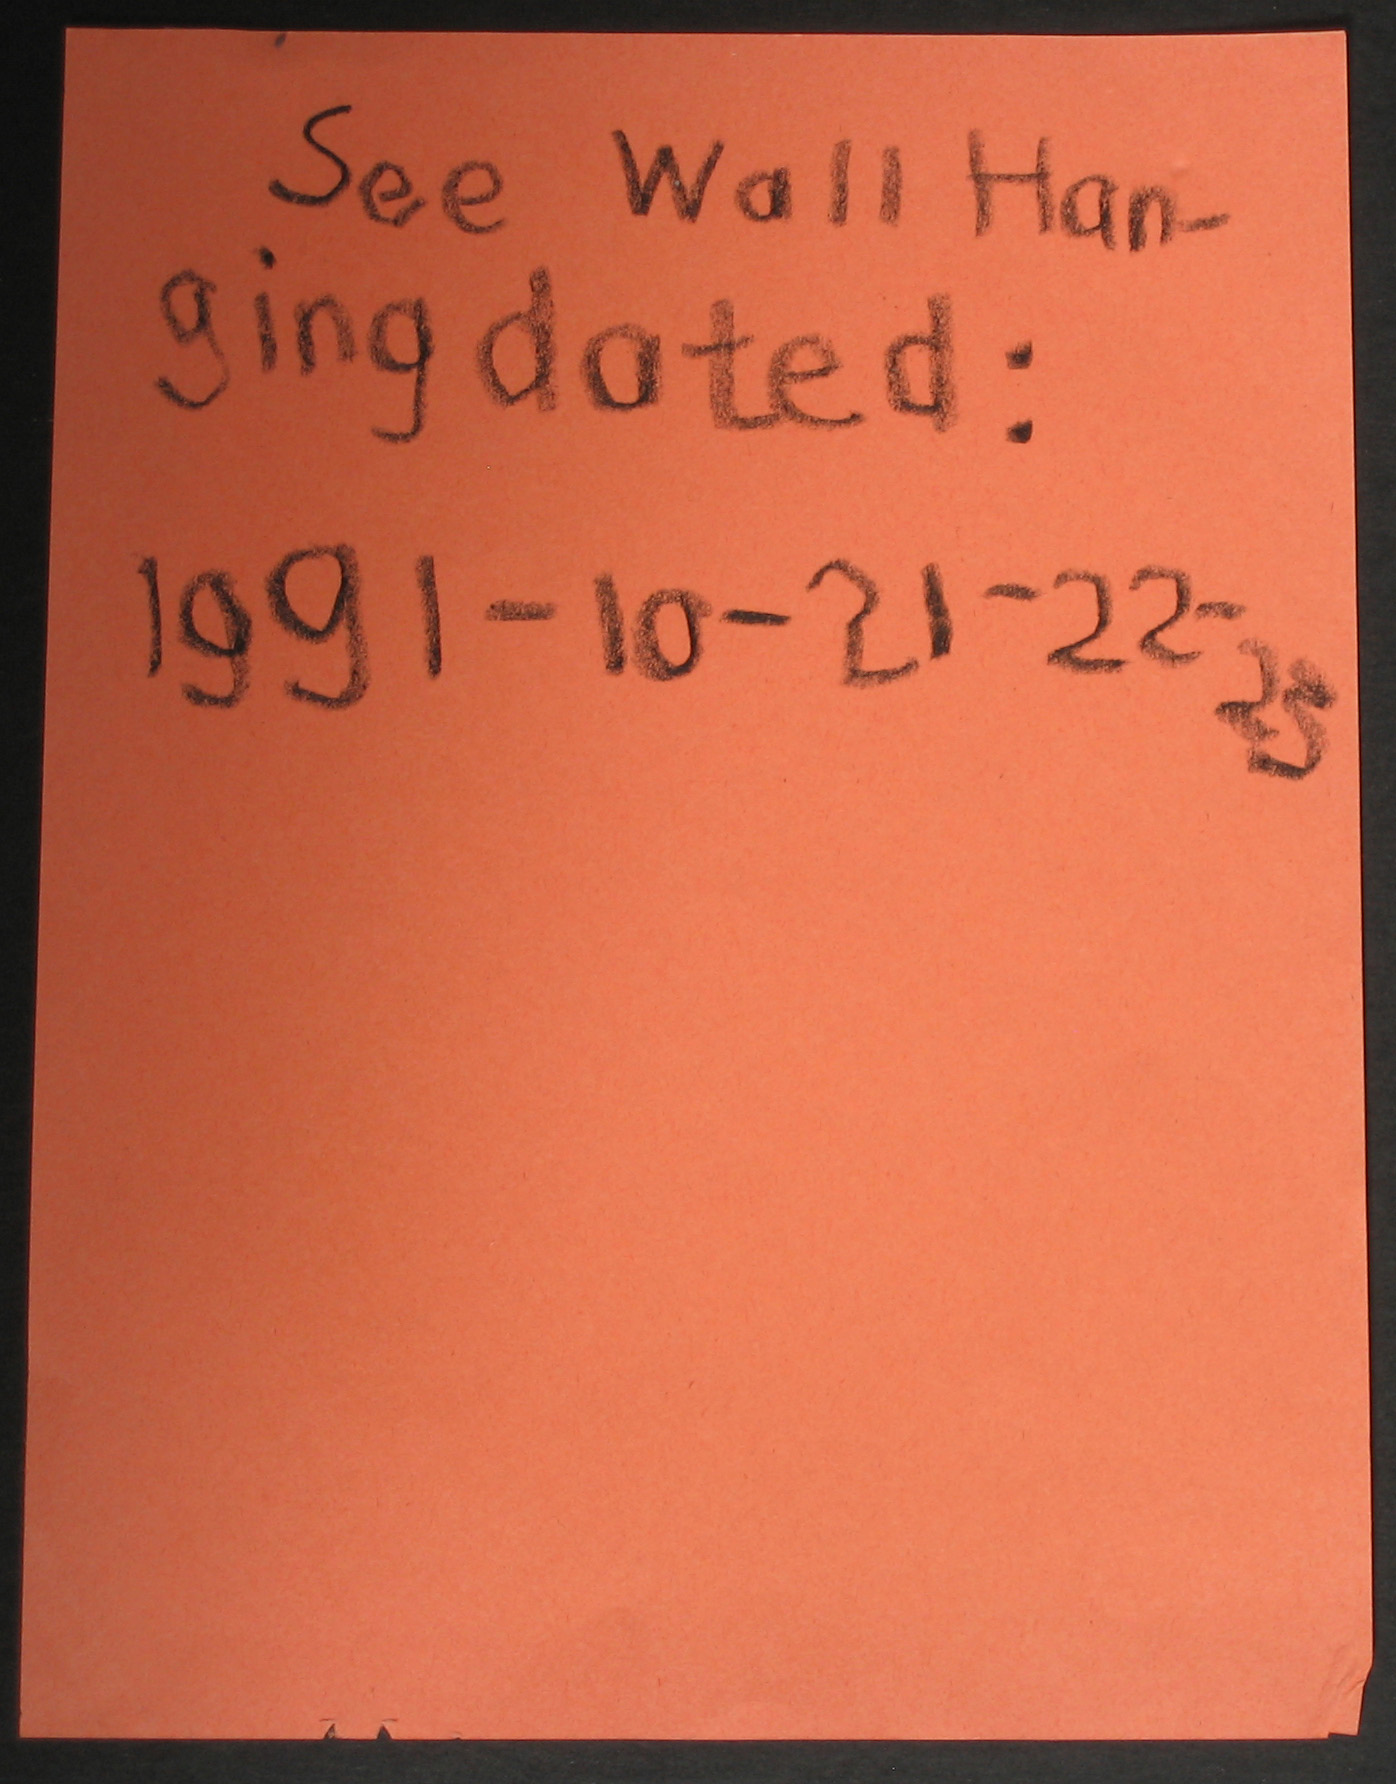 See Wall Han-
ging dated:
1991-10-21-22-
25